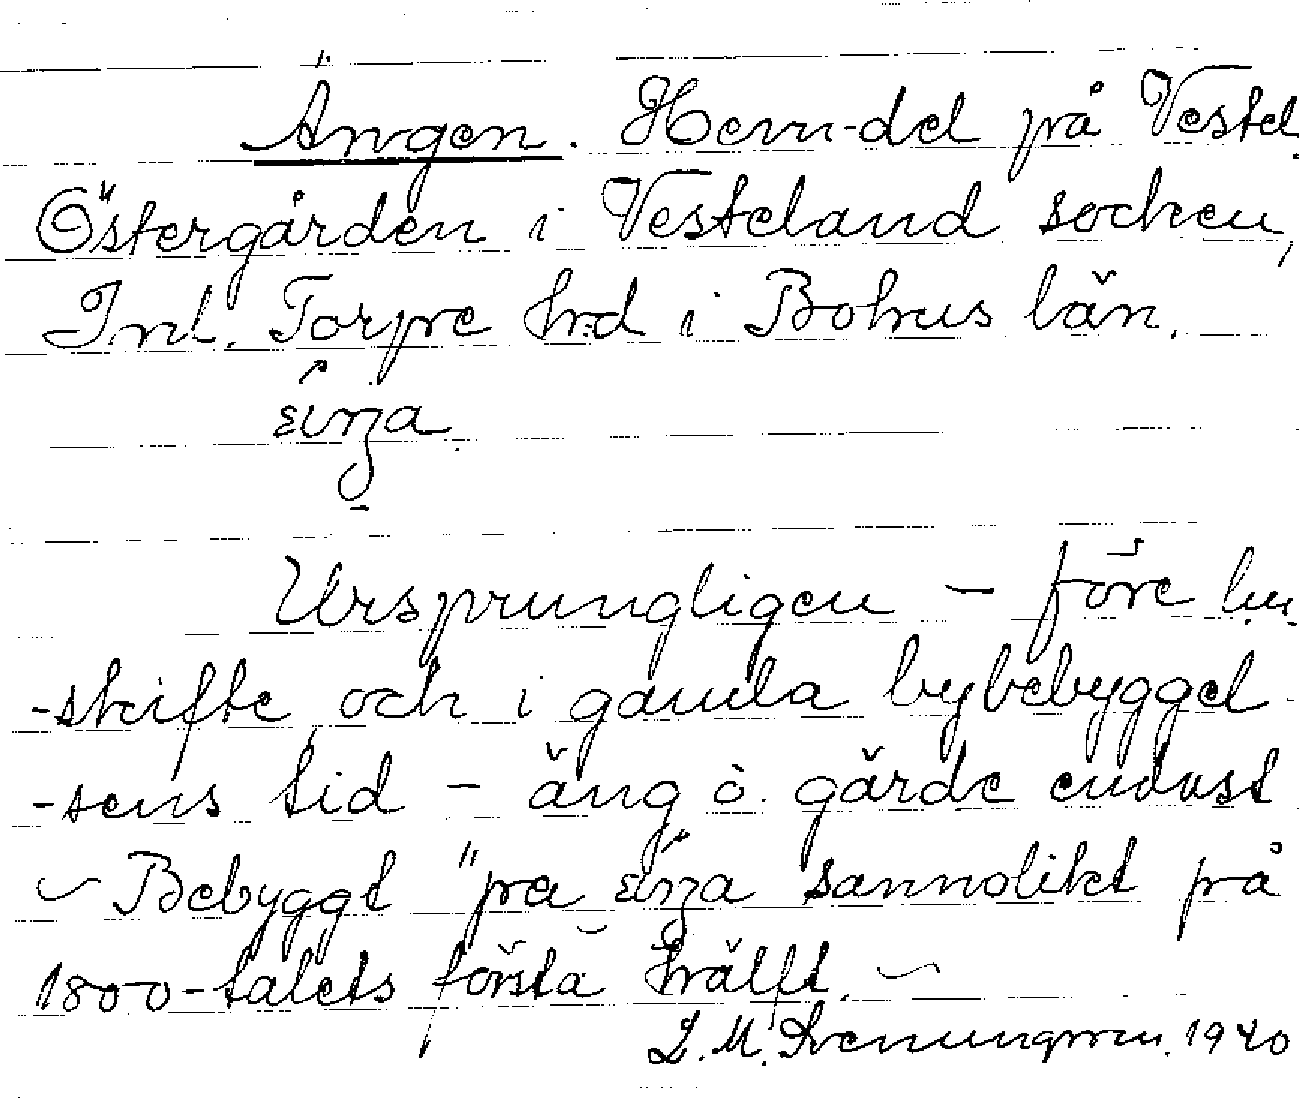 Ängen. Hem-del på Vestel.
Östergården i Vesteland socken,
Inl. Torpe hrd i Bohus län.
Ursprungligen – före
-skifte och i gamla bybebyggel
-sens tid – äng o. gärde endast
Bebyggt "pa sannolikt på
1800-talets första hälft.
L. M. Svenungsson. 1940